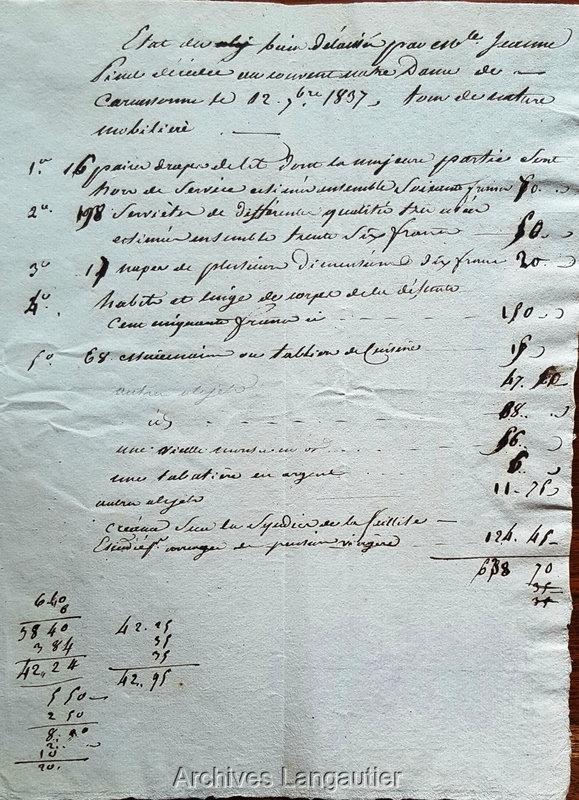 Etat des biens délaissés par Mlle Jeanne
décédée au couvent notre Dame de
Carcassonne le 12. 7bre 1837, tous de nature
mobilière
1° 16 paires draps de lit dont la majeure partie sont
hors de service estimés ensemble Soixante francs 60. "
2° 198 Serviettes de différentes qualités très usées
estimées ensemble trente Six francs 50. "
3° 17 napes de plusieurs dimensions dix francs 20 "
4° habits et linge de corps de la défunte
Cent cinquante francs ci 150 "
5° 68. ou tablier de Cuisine 15 "
47.
autres objets
88. "
une vieille montre en or 56. "
une tabatière en argent 6. "
autres objets 11-75
creance Sur la Syndics de la faillite
arrerages de pension viagere 124. 45
638 70
35
640
6
3840
384
42,24
550
250
8.
2.
10
20.
42.25
35
35
42.95
Archives Langautier